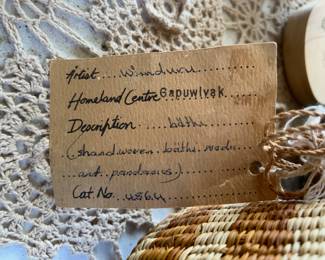 Artist
Homeland Centre Gapuwiyak
Description bathi
(handwoven bathi made
out pandanus)
Cat. No.